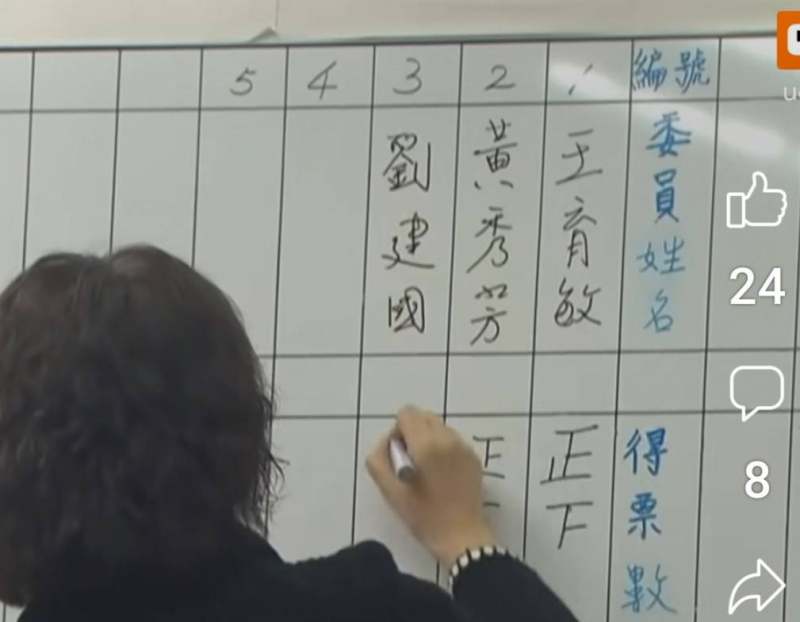 編號 1 2 3 4 5
委員姓名
王育敏
黃秀芳
劉建國
得票數
正下
正
24
8